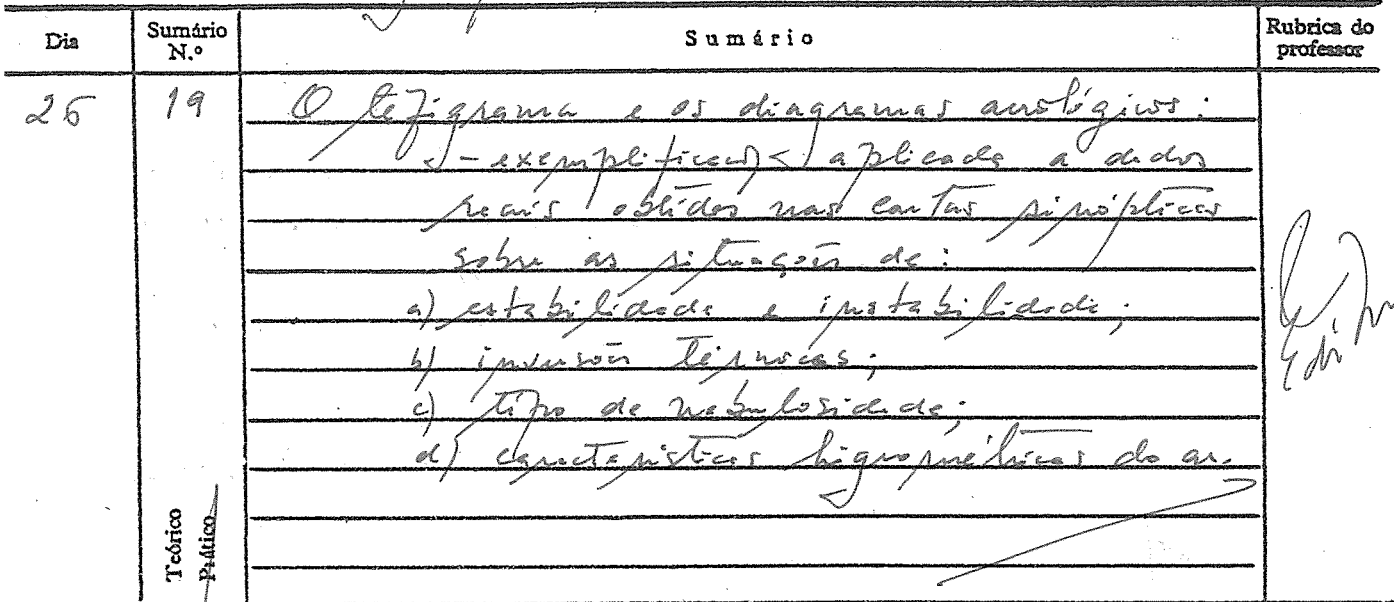 Dia
Sumário
N.º
Sumário
Rubrica do
professor
26
19
O tefigrama e os diagramas aerológicos:
- exemplificação aplicada a dados
reais obtidos nas cartas sinópticas
sobre as situações de:
a) estabilidade e instabilidade;
b) inversões térmicas;
c) tipo de nebulosidade;
d) características higrométricas do ar.
Teórico
Prático